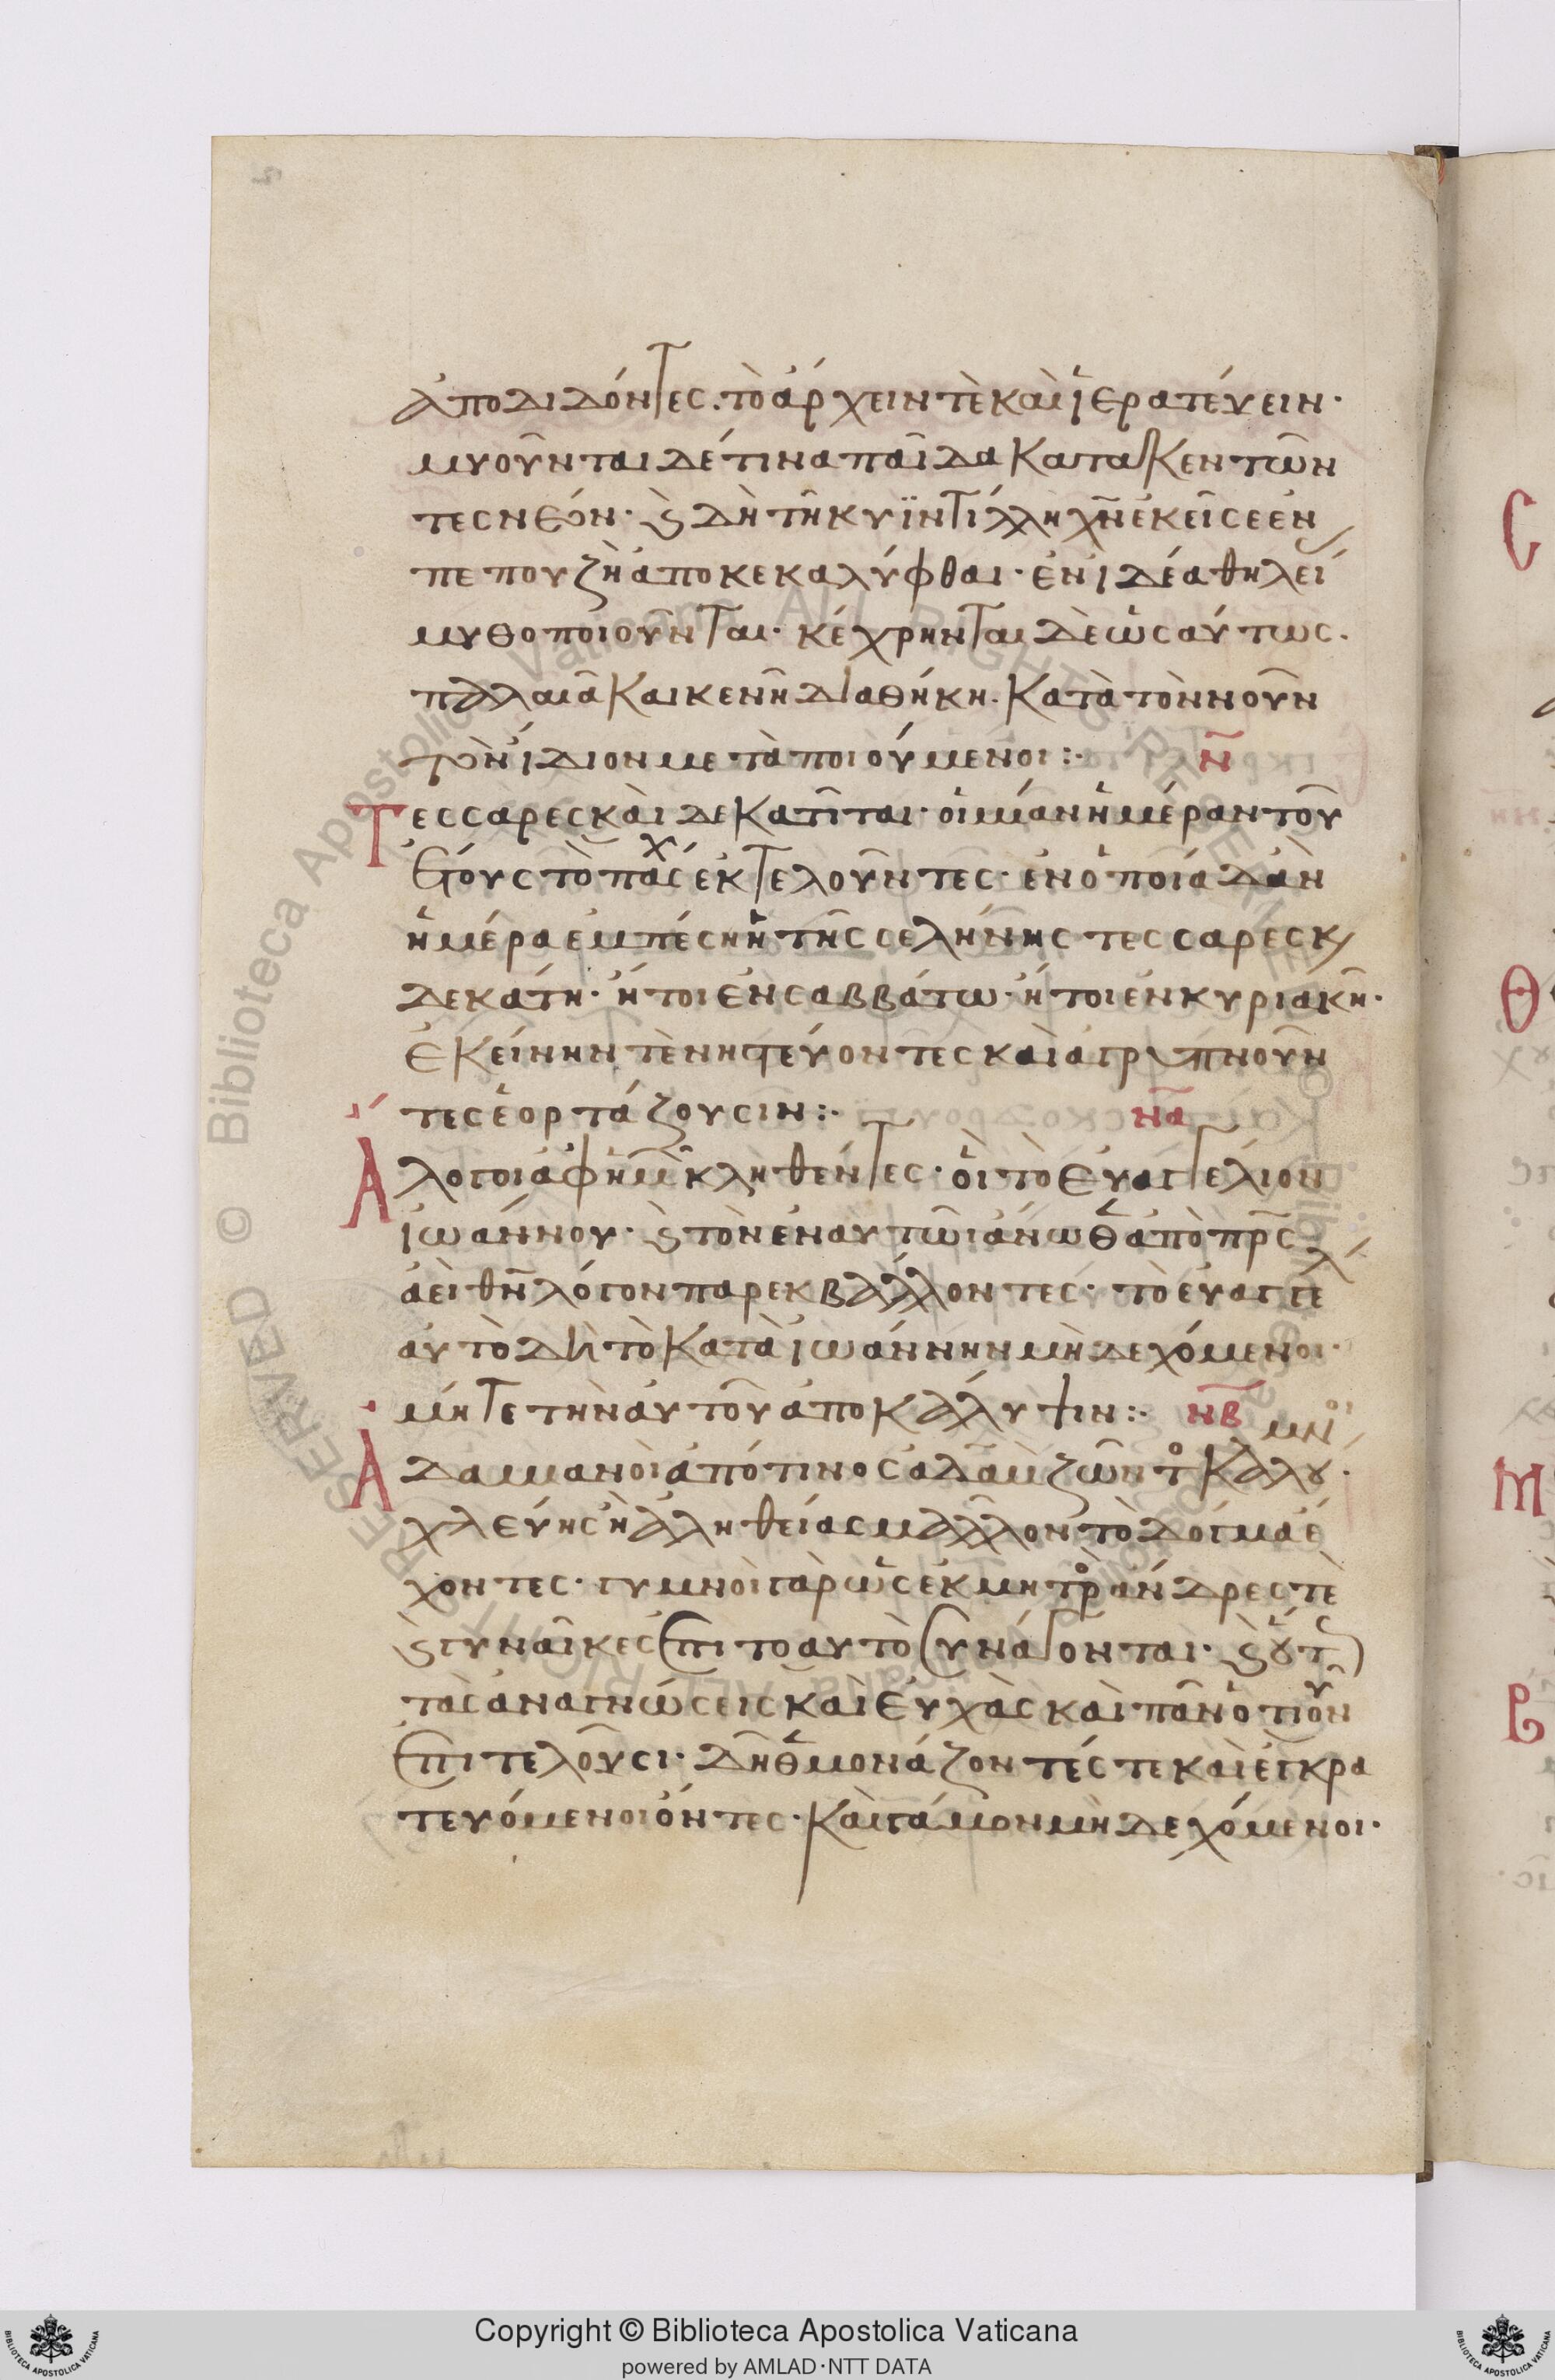 ἀποδιδόντες. τὸ ἄρχειν τὲ καὶ ἱερατέυειν·
μυοῦνται δέ τινα παῖδα κατακεντῶν
τες νέον· ϗ δὴ τῆ κυϊντίλλη χ̅ν̅ ἐκεῖσε ἐν
πεπουζῆ ἀποκεκαλύφθαι· ἐν ἰδέα θηλεί
μυθοποιοῦνται· κέχρηνται δὲ ὡσαύτως.
παλαιᾶ καὶ κενῆ διαθήκη. κατὰ τὸν νοῦν
τὸν ἴδιον μεταποιούμενοι :· ν̅
Τεσσαρεσκαὶδεκατῖται· οἱ μίαν ἡμέραν τοῦ
ἔτους τὸ πάσχ ἐκτελοῦντες· ἐν ὁποία δ' ἂν
ἡμέρα ἐμπέση ἡ τῆς σελήνης τεσσαρεσκ
δεκάτη· ἤτοι ἐν σαββάτω· ἤτοι ἐν κυριακῆ·
ἐκείνην τὲ νηστεύοντες καὶ ἀγρυπνοῦν
τες ἑορτάζουσιν :· ν̅α̅
Ἄλογοι ἀφ' ἡμ κληθέντες· οἱ τὸ ἐυαγγέλιον
ἰωάννου· ϗ τὸν ἐν αυτῶι ἄνωθ ἀπὸ π̅ρ̅ς̅
ἀεὶ θ̅ν̅ λόγον παρεκβάλλοντες· τὸ ἐυαγγελ
αυτὸ δὴ τὸ κατὰ ἰωάννην μὴ δεχόμενοι·
μήτε τὴν ἀυτοῦ ἀποκάλυψιν :· ν̅β̅
Ἀδαμιανοὶ ἀπό τινος ἀδὰμ ζῶντο καλουμν
χλεύης ἢ ἀληθείας μᾶλλον τὸ δόγμα ἔ
χοντες· γυμνοὶ γὰρ ὡς ἐκ μητρο ἄνδρες τὲ
ϗ γυναῖκες ἐπιτοαυτὸ συνάγονται· ϗ ὅυτ
τὰς ἀναγνώσεις καὶ ἐυχὰς καὶ πᾶν ὁτιοῦν
ἐπιτελοῦσι· δῆθ μονάζοντές τε καὶ ἐγκρα
τευόμενοι ὄντες· καὶ γάμον μὴ δεχόμενοι·
Copyright © Biblioteca Apostolica Vaticana
powered by AMLAD·NTT DATA